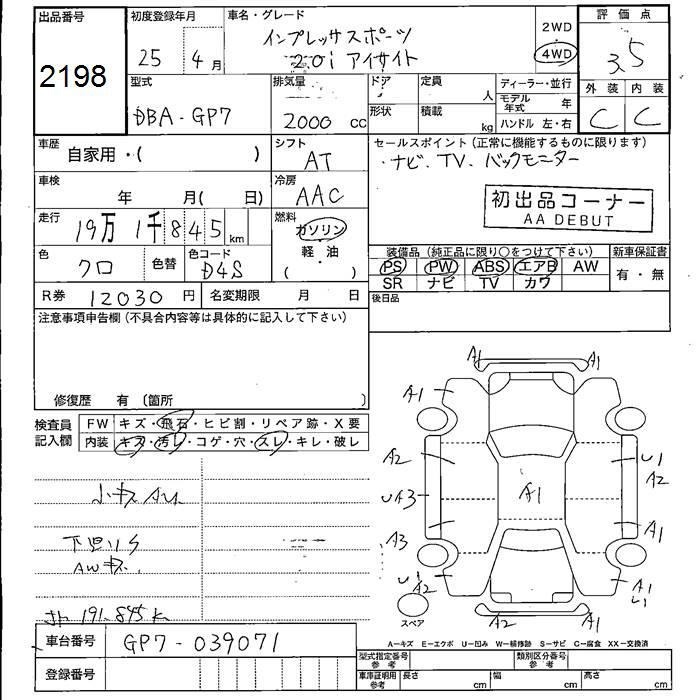 出品番号 初度登録年月 車名・グレード 2WD 評価点
2198 25年 4月 インプレッサスポーツ 4WD 3.5
2.0i アイサイト
外装 内装
型式 排気量 ドア 定員 ディーラー・並行
人 モデル年式 年
DBA-GP7 2000 cc 形状 積載 kg ハンドル 左・右 C C
車歴 自家用・( ) シフト AT セールスポイント(正常に機能するものに限ります)
・ナビ、TV、バックモニター
車検 年 月( 日) 冷房 AAC
初出品コーナー
AA DEBUT
走行 19万1千845km 燃料 ガソリン
軽・油
( )
色 クロ 色替 色コード D4S
装備品(純正品に限り○をつけて下さい) 新車保証書
PS PW ABS エアB AW 有・無
SR ナビ TV カワ
R券 12030円 名変期限 月 日 後日品
注意事項申告欄(不具合内容等は具体的に記入して下さい)
修復歴 有(箇所 )
検査員記入欄 FW キズ・飛石・ヒビ割・リペア跡・X要
内装 キズ・汚レ・コゲ・穴・スレ・キレ・破レ
小キズAU
下廻りS
AWキズ
191,845k
A1 A1
A1
A2 U1
A2
UA3 A1
A3 A1
U1
A2 A1
L1
A2 A1
スペア
A-キズ E-エクボ U-凹み W-補修跡 S-サビ C-腐食 XX-交換済
車台番号 GP7-039071
登録番号
型式指定番号 参考 類別区分番号 参考
車庫証明用 参考 長さ cm 幅 cm 高さ cm